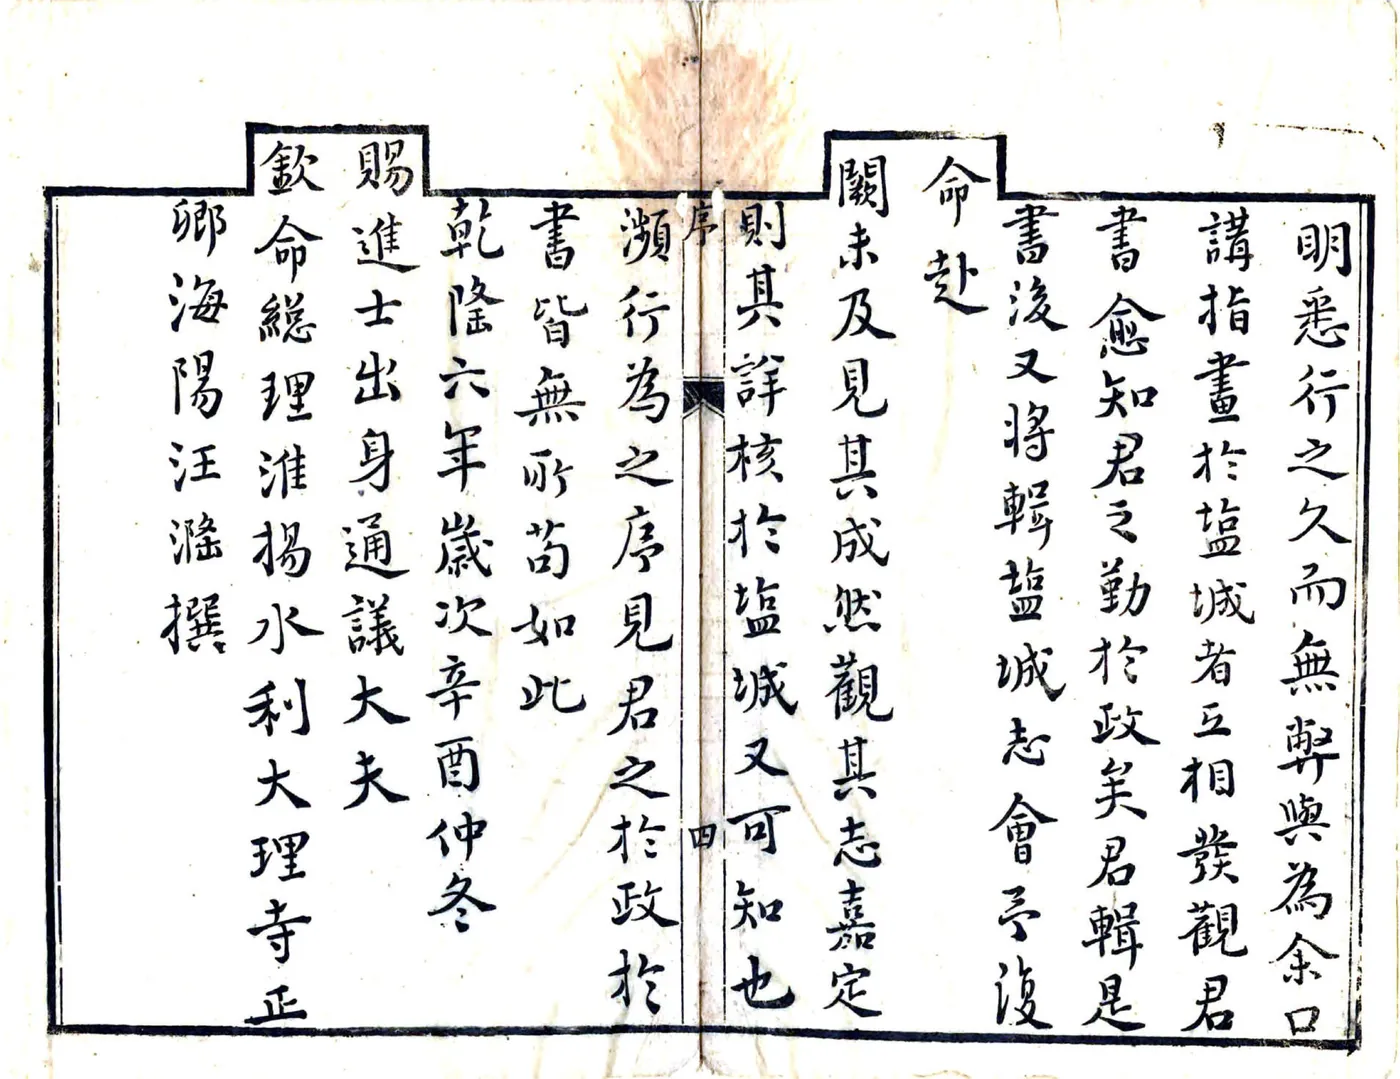 明悉行之久而無弊與為余口
講指畫於塩城者互相發觀君
書愈知君之勤於政矣君輯是
書後又將輯塩城志會予復
命赴
闕未及見其成然觀其志嘉定
則其詳核於塩城又可知也
序
四
瀕行為之序見君之於政於
書皆無所苟如此
乾隆六年歲次辛酉仲冬
賜進士出身通議大夫
欽命總理淮揚水利大理寺正
卿海陽汪漋撰